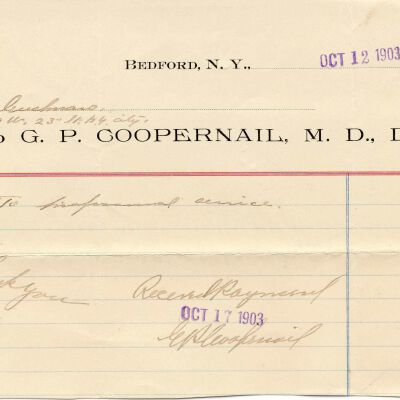 BEDFORD, N. Y.,
OCT 12 1903
W. 23rd St. N.Y. City.
G. P. COOPERNAIL, M. D., D
To professional service.
you Received Payment
OCT 17 1903
G P Coopernail